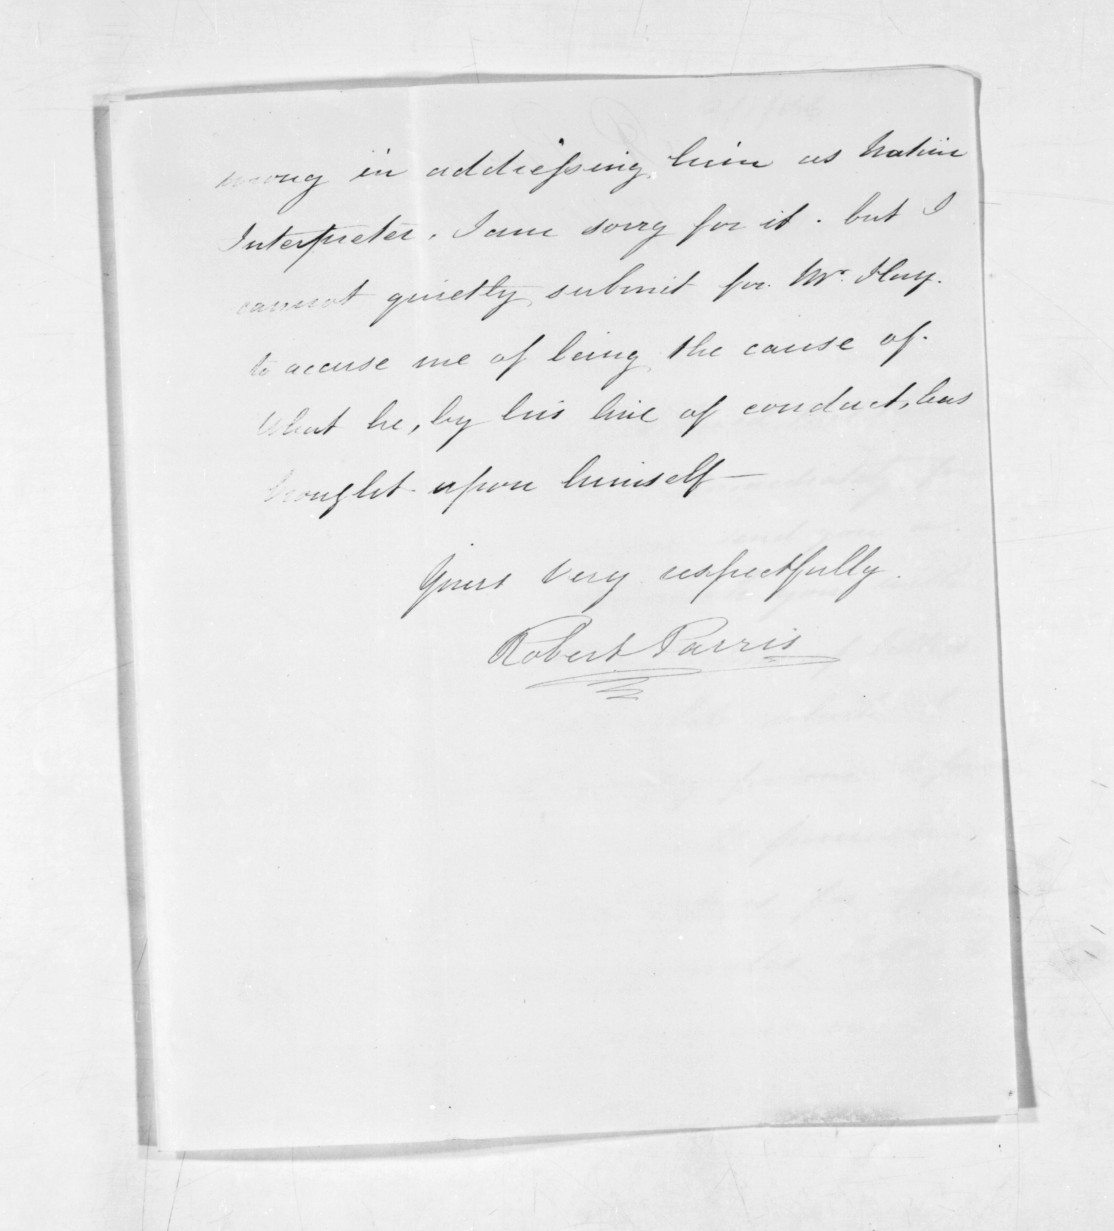 wrong in addressing him as Native
Interpreter. I am sorry for it. but I
cannot quietly submit for Mr. Hay.
to accuse me of being the cause of.
What he, by his line of conduct, has
brought upon himself—
Yours very respectfully.
Robert Parris